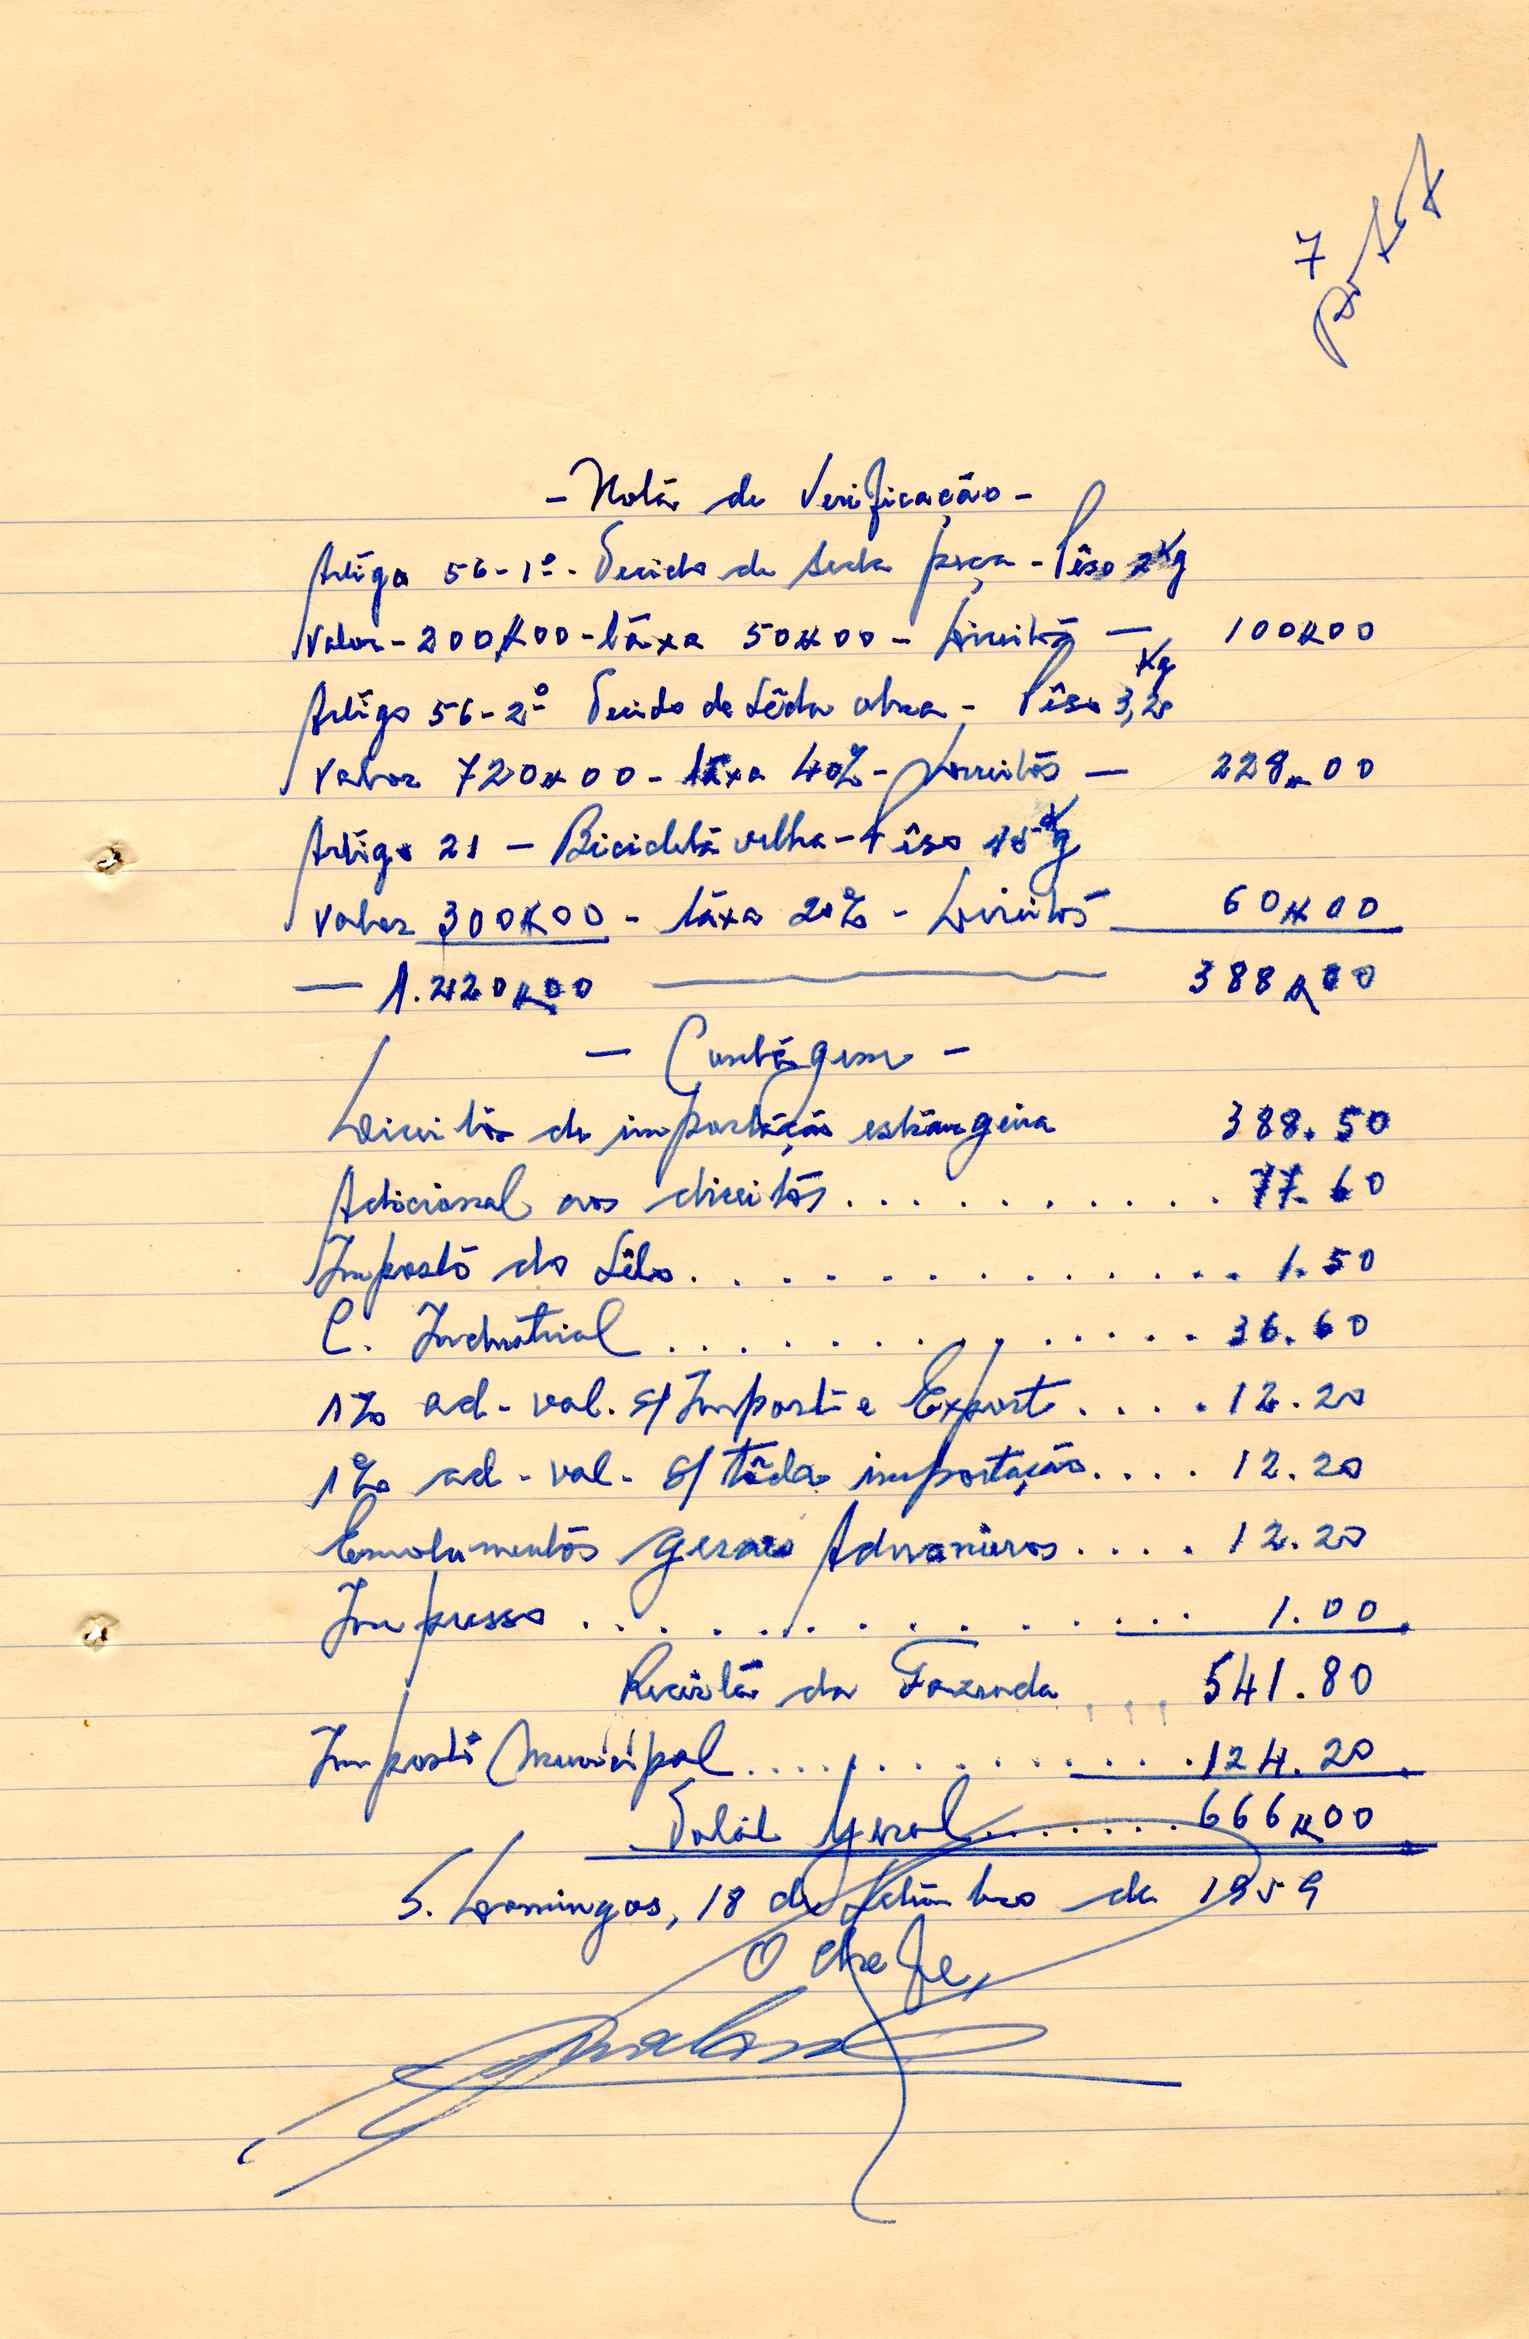 7
- Notá de Verificação -
Artigo 56-1º - Tecido de seda pura - Pêso 2 Kg
Valor - 200$00 - táxa 50$00 - Direitos — 100$00
Artigo 56-2º Tecido de Sêda obra - Pêso 3,2 Kg
Valor 720$00 - táxa 40% - Direitos — 228$00
Artigo 21 — Bicicletá velha - Pêso 15 Kg
Valor 300$00 - táxa 20% - Direitos 60$00
— 1.220$00 — 388$00
— Contágem —
Direitos de importação estrangeira 388.50
Adicional aos direitos . . . . . . . . . . . 77.60
Imposto do Sêlo . . . . . . . . . . . . . . 1.50
C. Industrial . . . . . . . . . . . . . . . 36.60
1% ad-val. s/ Import e Export . . . . 12.20
1% ad-val. s/ tôda importação . . . . 12.20
Emolumentos gerais Aduaneiros . . . . 12.20
Impresso . . . . . . . . . . . . . . . 1.00
Receitá da Fazenda . . . 541.80
Imposto Municipal . . . . . . . . . . . . 124.20
Total Geral . . . . . . . 666$00
S. Domingos, 18 de Setembro de 1959
O Chefe,